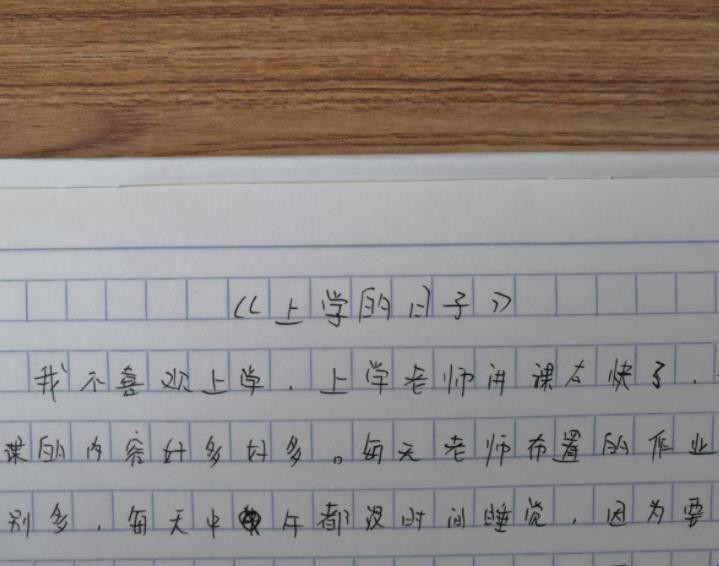 《上学的日子》
我不喜欢上学，上学老师讲课太快了，
课的内容好多好多。每天老师布置的作业
别多，每天中午都没时间睡觉，因为要